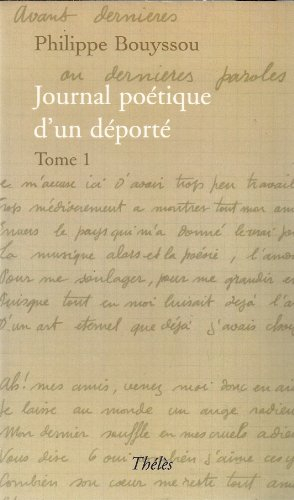 Avant dernières
Philippe Bouyssou
ou dernières paroles
Journal poétique
d'un déporté
Tome 1
Je m'accuse ici D'avoir trop peu travail
Trop médiocrement a montrer tout mon am
Envers le pays qui m'a donné le vrai po
La musique alors et la poésie, l'amo
Pour me soulager, pour me grandir en
Puisque tout en moi luisait déjà l'a
D'un art eternel que déjà j'avais choi
Ah! mes amis, venez moi donc en ai
Je laisse au monde un ange radieu
Mon dernier souffle en mes cruels adieu
Vous disc 6 oui combien j'aime ces
Combien son cœur me reste tout am
Thélès